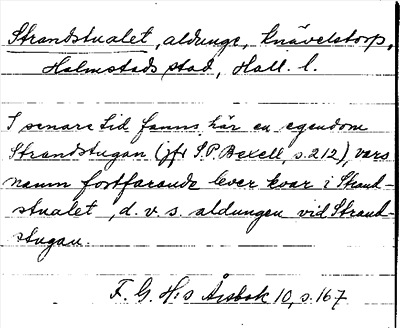 Strandstualet, aldunge, Knävelstorp,
Halmstads stad, Hall. l.
I senare tid fanns här en egendom
Strandstugan (jfr S.P. Bexell, s. 212), vars
namn fortfarande lever kvar i Strand-
stualet, d.v.s. aldungen vid Strand-
stugan.
F. G. H:s Årsbok 10, s. 167